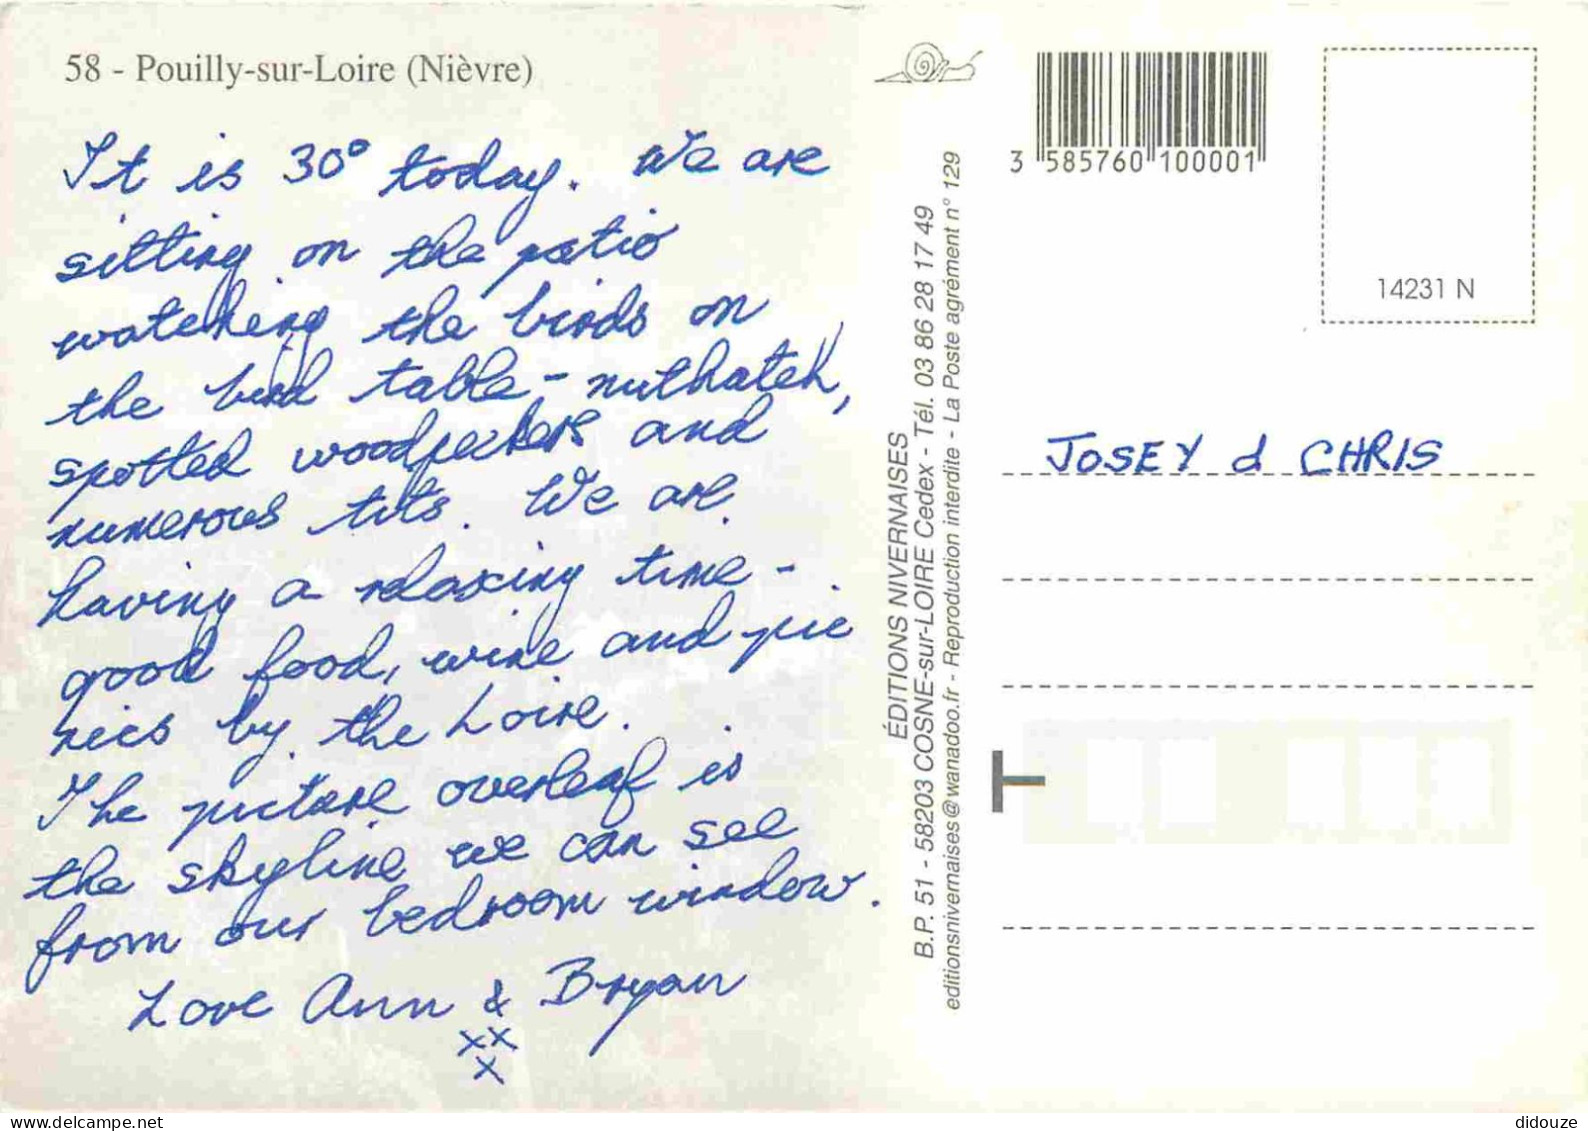 58 - Pouilly-sur-Loire (Nièvre)
It is 30° today. We are
sitting on the patio
watching the birds on
the bird table - nuthatch,
spotted woodpeckers and
numerous tits. We are
having a relaxing time -
good food, wine and pic
nics by the Loire.
The picture overleaf is
the skyline we can see
from our bedroom window.
Love Ann & Bryan
xx
x
ÉDITIONS NIVERNAISES
B.P. 51 - 58203 COSNE-sur-LOIRE Cedex - Tél. 03 86 28 17 49
editionsnivernaises@wanadoo.fr - Reproduction interdite - La Poste agrément n° 129
3 585760 100001
14231 N
JOSEY & CHRIS
delcampe.net
didouze